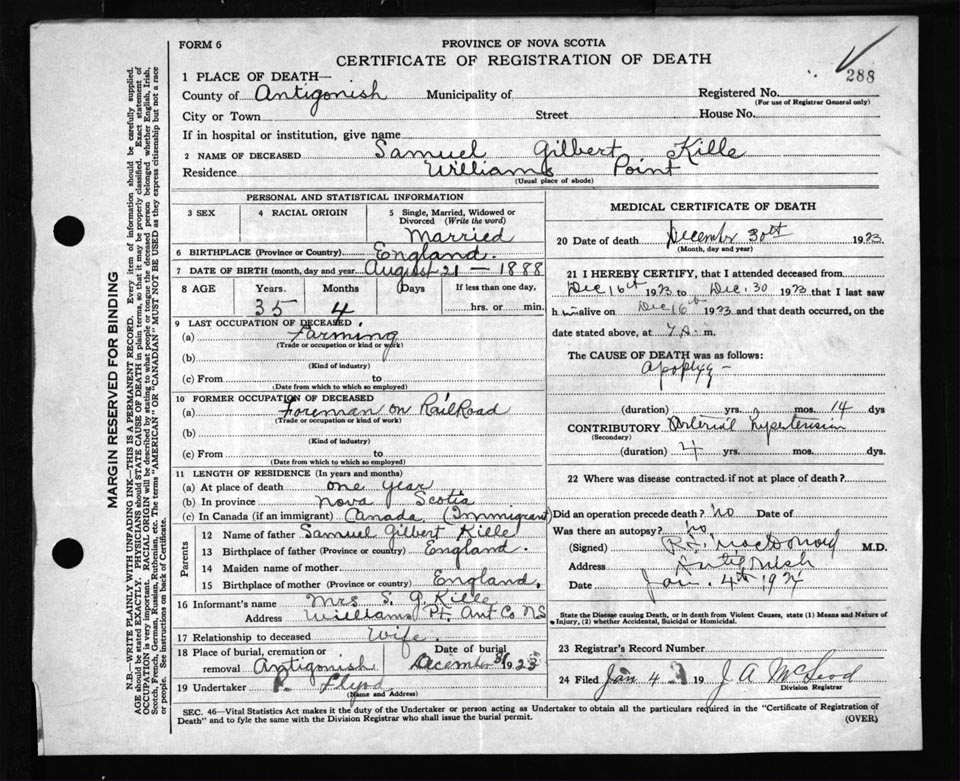 FORM 6
PROVINCE OF NOVA SCOTIA
CERTIFICATE OF REGISTRATION OF DEATH
288
1 PLACE OF DEATH—
County of Antigonish Municipality of Registered No.
(For use of Registrar General only)
City or Town Street House No.
If in hospital or institution, give name
2 NAME OF DECEASED Samuel Gilbert Kille
Residence Williams Point
(Usual place of abode)
PERSONAL AND STATISTICAL INFORMATION
3 SEX 4 RACIAL ORIGIN 5 Single, Married, Widowed or
Divorced (Write the word)
Married
6 BIRTHPLACE (Province or Country) England.
7 DATE OF BIRTH (month, day and year August 21 — 1888
8 AGE Years. Months Days If less than one day,
35 4 hrs. or min.
9 LAST OCCUPATION OF DECEASED
(a) Farming
(Trade or occupation or kind or work)
(b)
(Kind of industry)
(c) From to
(Date from which to which so employed)
10 FORMER OCCUPATION OF DECEASED
(a) Foreman on RailRoad
(Trade or occupation or kind or work)
(b)
(Kind of industry)
(c) From to
(Date from which to which so employed)
11 LENGTH OF RESIDENCE (In years and months)
(a) At place of death one year
(b) In province Nova Scotia
(c) In Canada (if an immigrant) Canada (Immigrant)
Parents
12 Name of father Samuel Gilbert Kille
13 Birthplace of father (Province or country) England.
14 Maiden name of mother
15 Birthplace of mother (Province or country) England.
16 Informant's name Mrs S. G. Kille
Address Williams Pt. Ant Co NS
17 Relationship to deceased Wife.
18 Place of burial, cremation or Date of burial
removal Antigonish December 31 1923
19 Undertaker Floyd
(Name and Address)
MEDICAL CERTIFICATE OF DEATH
20 Date of death December 30th 1923.
(Month, day and year)
21 I HEREBY CERTIFY, that I attended deceased from
Dec 16th 1923 to Dec. 30 1923 that I last saw
him alive on Dec 16th 1923 and that death occurred, on the
date stated above, at 7 A. m.
The CAUSE OF DEATH was as follows:
Apoplexy —
(duration) yrs. mos. 14 dys
CONTRIBUTORY Arterial hypertension
(Secondary)
(duration) 4 yrs. mos. dys.
22 Where was disease contracted if not at place of death?
Did an operation precede death? no Date of
Was there an autopsy? no
(Signed) MacDonald M.D.
Address Antigonish
Date Jan. 4th 1924
State the Disease causing Death, or in death from Violent Causes, state (1) Means and Nature of
Injury, (2) whether Accidental, Suicidal or Homicidal.
23 Registrar's Record Number
24 Filed Jan 4 19 J A McLeod
Division Registrar
SEC. 46—Vital Statistics Act makes it the duty of the Undertaker or person acting as Undertaker to obtain all the particulars required in the "Certificate of Registration of
Death" and to fyle the same with the Division Registrar who shall issue the burial permit. (OVER)
MARGIN RESERVED FOR BINDING
N.B.—WRITE PLAINLY WITH UNFADING INK—THIS IS A PERMANENT RECORD. Every item of information should be carefully supplied.
AGE should be stated EXACTLY. PHYSICIANS should STATE CAUSE OF DEATH in plain terms, so that it may be properly classified. Exact statement of
OCCUPATION is very important. RACIAL ORIGIN will be described by stating to what people or tongue the deceased person belonged whether English, Irish,
Scotch, French, German, Russian, Ruthenian, etc. The terms "AMERICAN" OR "CANADIAN" MUST NOT BE USED as they express citizenship but not a race
or people. See instructions on back of Certificate.